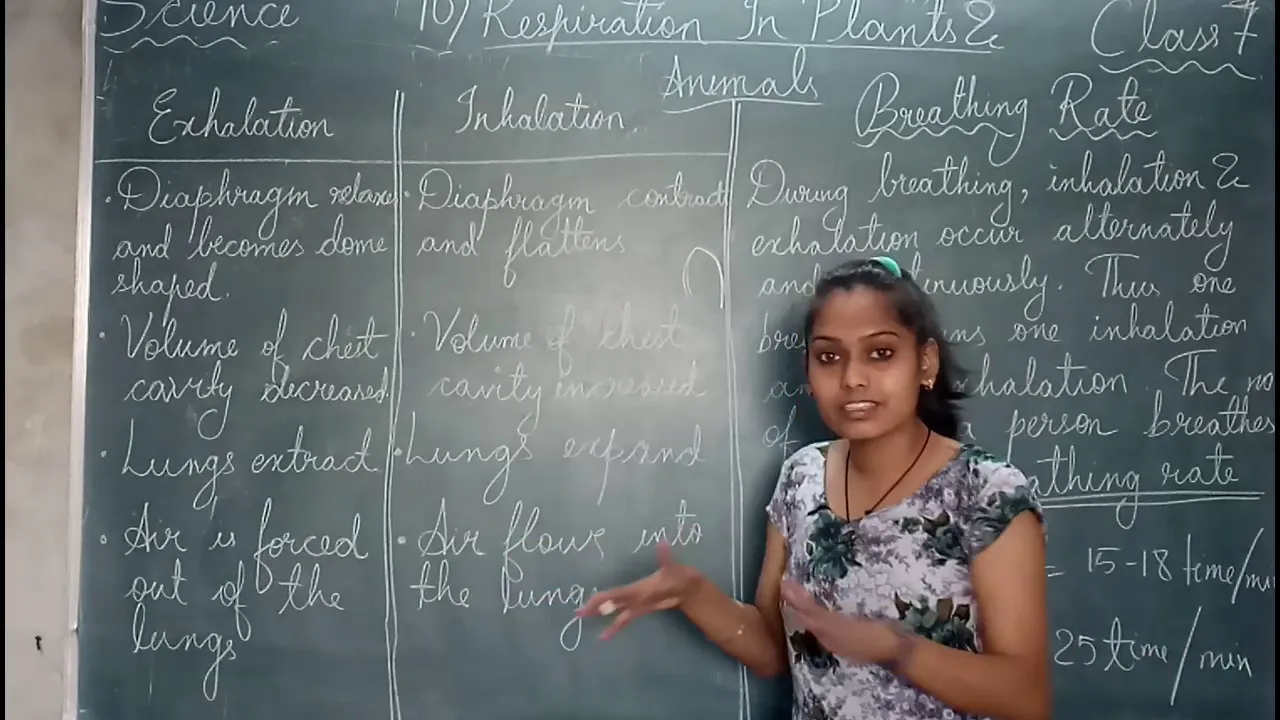 Science
10) Respiration In Plants &
Animals
Class 7
Exhalation
• Diaphragm relaxes
and becomes dome
shaped.
• Volume of chest
cavity decreased
• Lungs extract
• Air is forced
out of the
lungs
Inhalation
• Diaphragm contract
and flattens
• Volume of chest
cavity increased
• Lungs expand
• Air flows into
the lungs
Breathing Rate
During breathing, inhalation &
exhalation occur alternately
Thus one
one inhalation
The no
of a person breathes
rate
= 15-18 time/
25 time/min